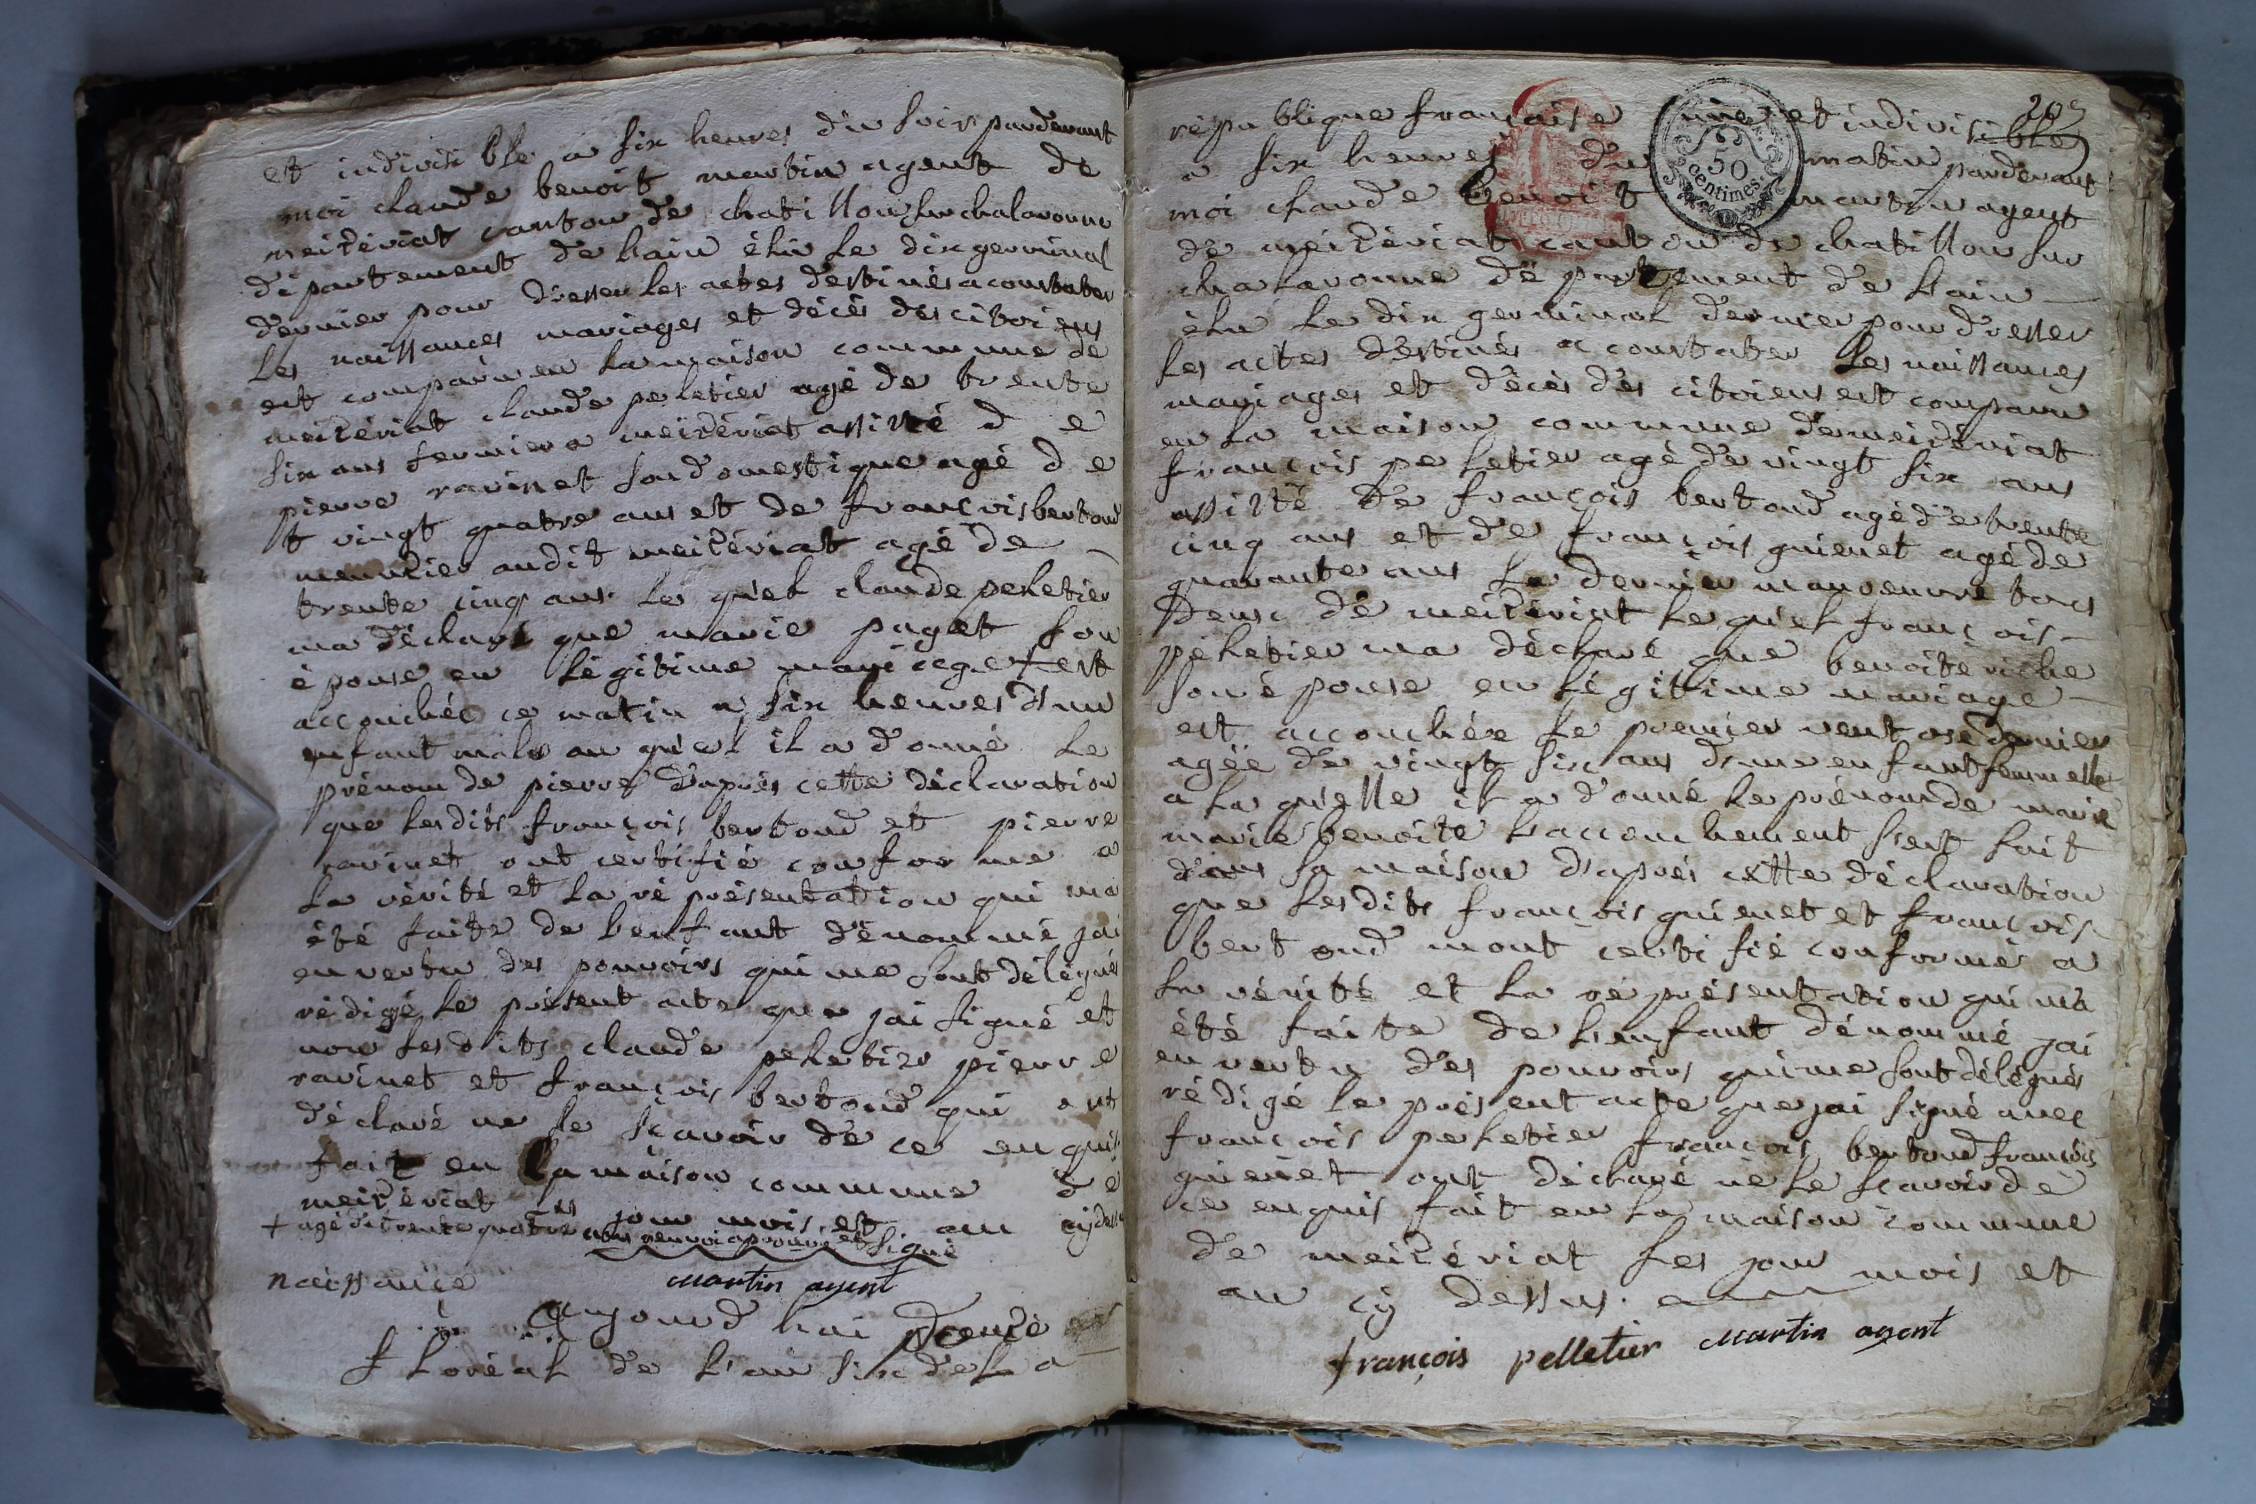 et indivisible a six heures du soir pardevant
moi claude benoit martin agent de
meizériat canton de chatillon sur chalaronne
département de lain élu le dix germinal
dernier pour dresser les actes destinés a constater
les naissances mariages et décés des citoiens
est comparu en la maison commune de
meizériat claude peletier agé de trente
six ans fermier a meizériat assisté d e
pierre ravinet son domestique agé d e
t vingt quatre ans et de françois bertoud
meunier audit meizériat agé de
trente cinq ans. le quel claude peletier
ma déclaré que marie puget son
épouse en légitime mariage + est
accouchée ce matin a six heures d'un
enfant male au quel il a donné le
prénom de pierre d'aprés cette déclaration
que lesdits françois bertoud et pierre
ravinet ont certifié conforme a
la vérité et la réprésentation qui ma
été faite de l'enfant dénommé jai
en vertu des pouvoirs qui me sont délégués
rédigé le présent acte que jai signé et
non lesdits claude peletier pierre
ravinet et françois bertoud qui ont
déclaré ne le scavoir de ce enquis
fait en la maison commune de
meizériat les jour mois et an cydessus
+ agé de trente quatre ans renvoi aprouvé et signé
martin agent
naissance
aujourd hui
floréal de l'an six de la
205
républiquefrançaise une et indivisible
50 centimes
a six heures du matin pardevant
moi claude benoit martin agent
de meizériat canton de chatillon sur
chalaronne département de lain
élu le dix germinal dernier pour dresser
les actes destinés a constater les naissances
mariages et décés des citoiens est comparu
en la maison commune de meizériat
françois peletier agé de vingt six ans
assisté de françois bertoud agé de trente
cinq ans et de françois guienet agé de
quarante ans le dernier manoeuvre tous
deux de meizériat lequel françois
péletier ma déclaré que benoite riche
son épouse en légitime mariage
est accouchée le premier ventose dernier
agée de vingt six ans d'une enfant femmelle
a la quelle il a donné le prénom de marie
marie benoite l'accouchement s'est fait
dans sa maison d'aprés cette déclaration
que lesdits françois guienet et françois
bertoud mont certifié conforme a
la vérité et la réprésentation qui m'a
été faite de l'enfant dénommé jai
en vertu des pouvoirs qui me sont délégués
rédigé le présent acte que jai signé avec
françois peletier françois bertoud françois
guienet ont déclaré ne le scavoir de
ce enquis fait en la maison commune
de meizériat les jour mois et
an cy dessus.
françois pelletier martin agent